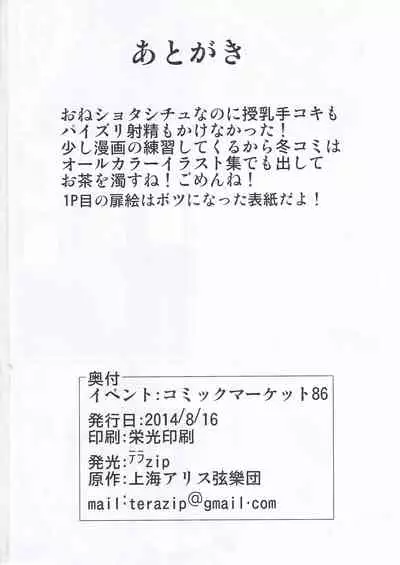 あとがき
少し漫画の練習してくるから冬コミは
オールカラーイラスト集でも出して
お茶を濁すね!ごめんね!
1P目の扉絵はボツになった表紙だよ!
奥付
イベント:コミックマーケット86
発行日:2014/8/16
印刷:栄光印刷
発光:テラzip
原作:上海アリス弦樂団
mail:terazip@gmail.com